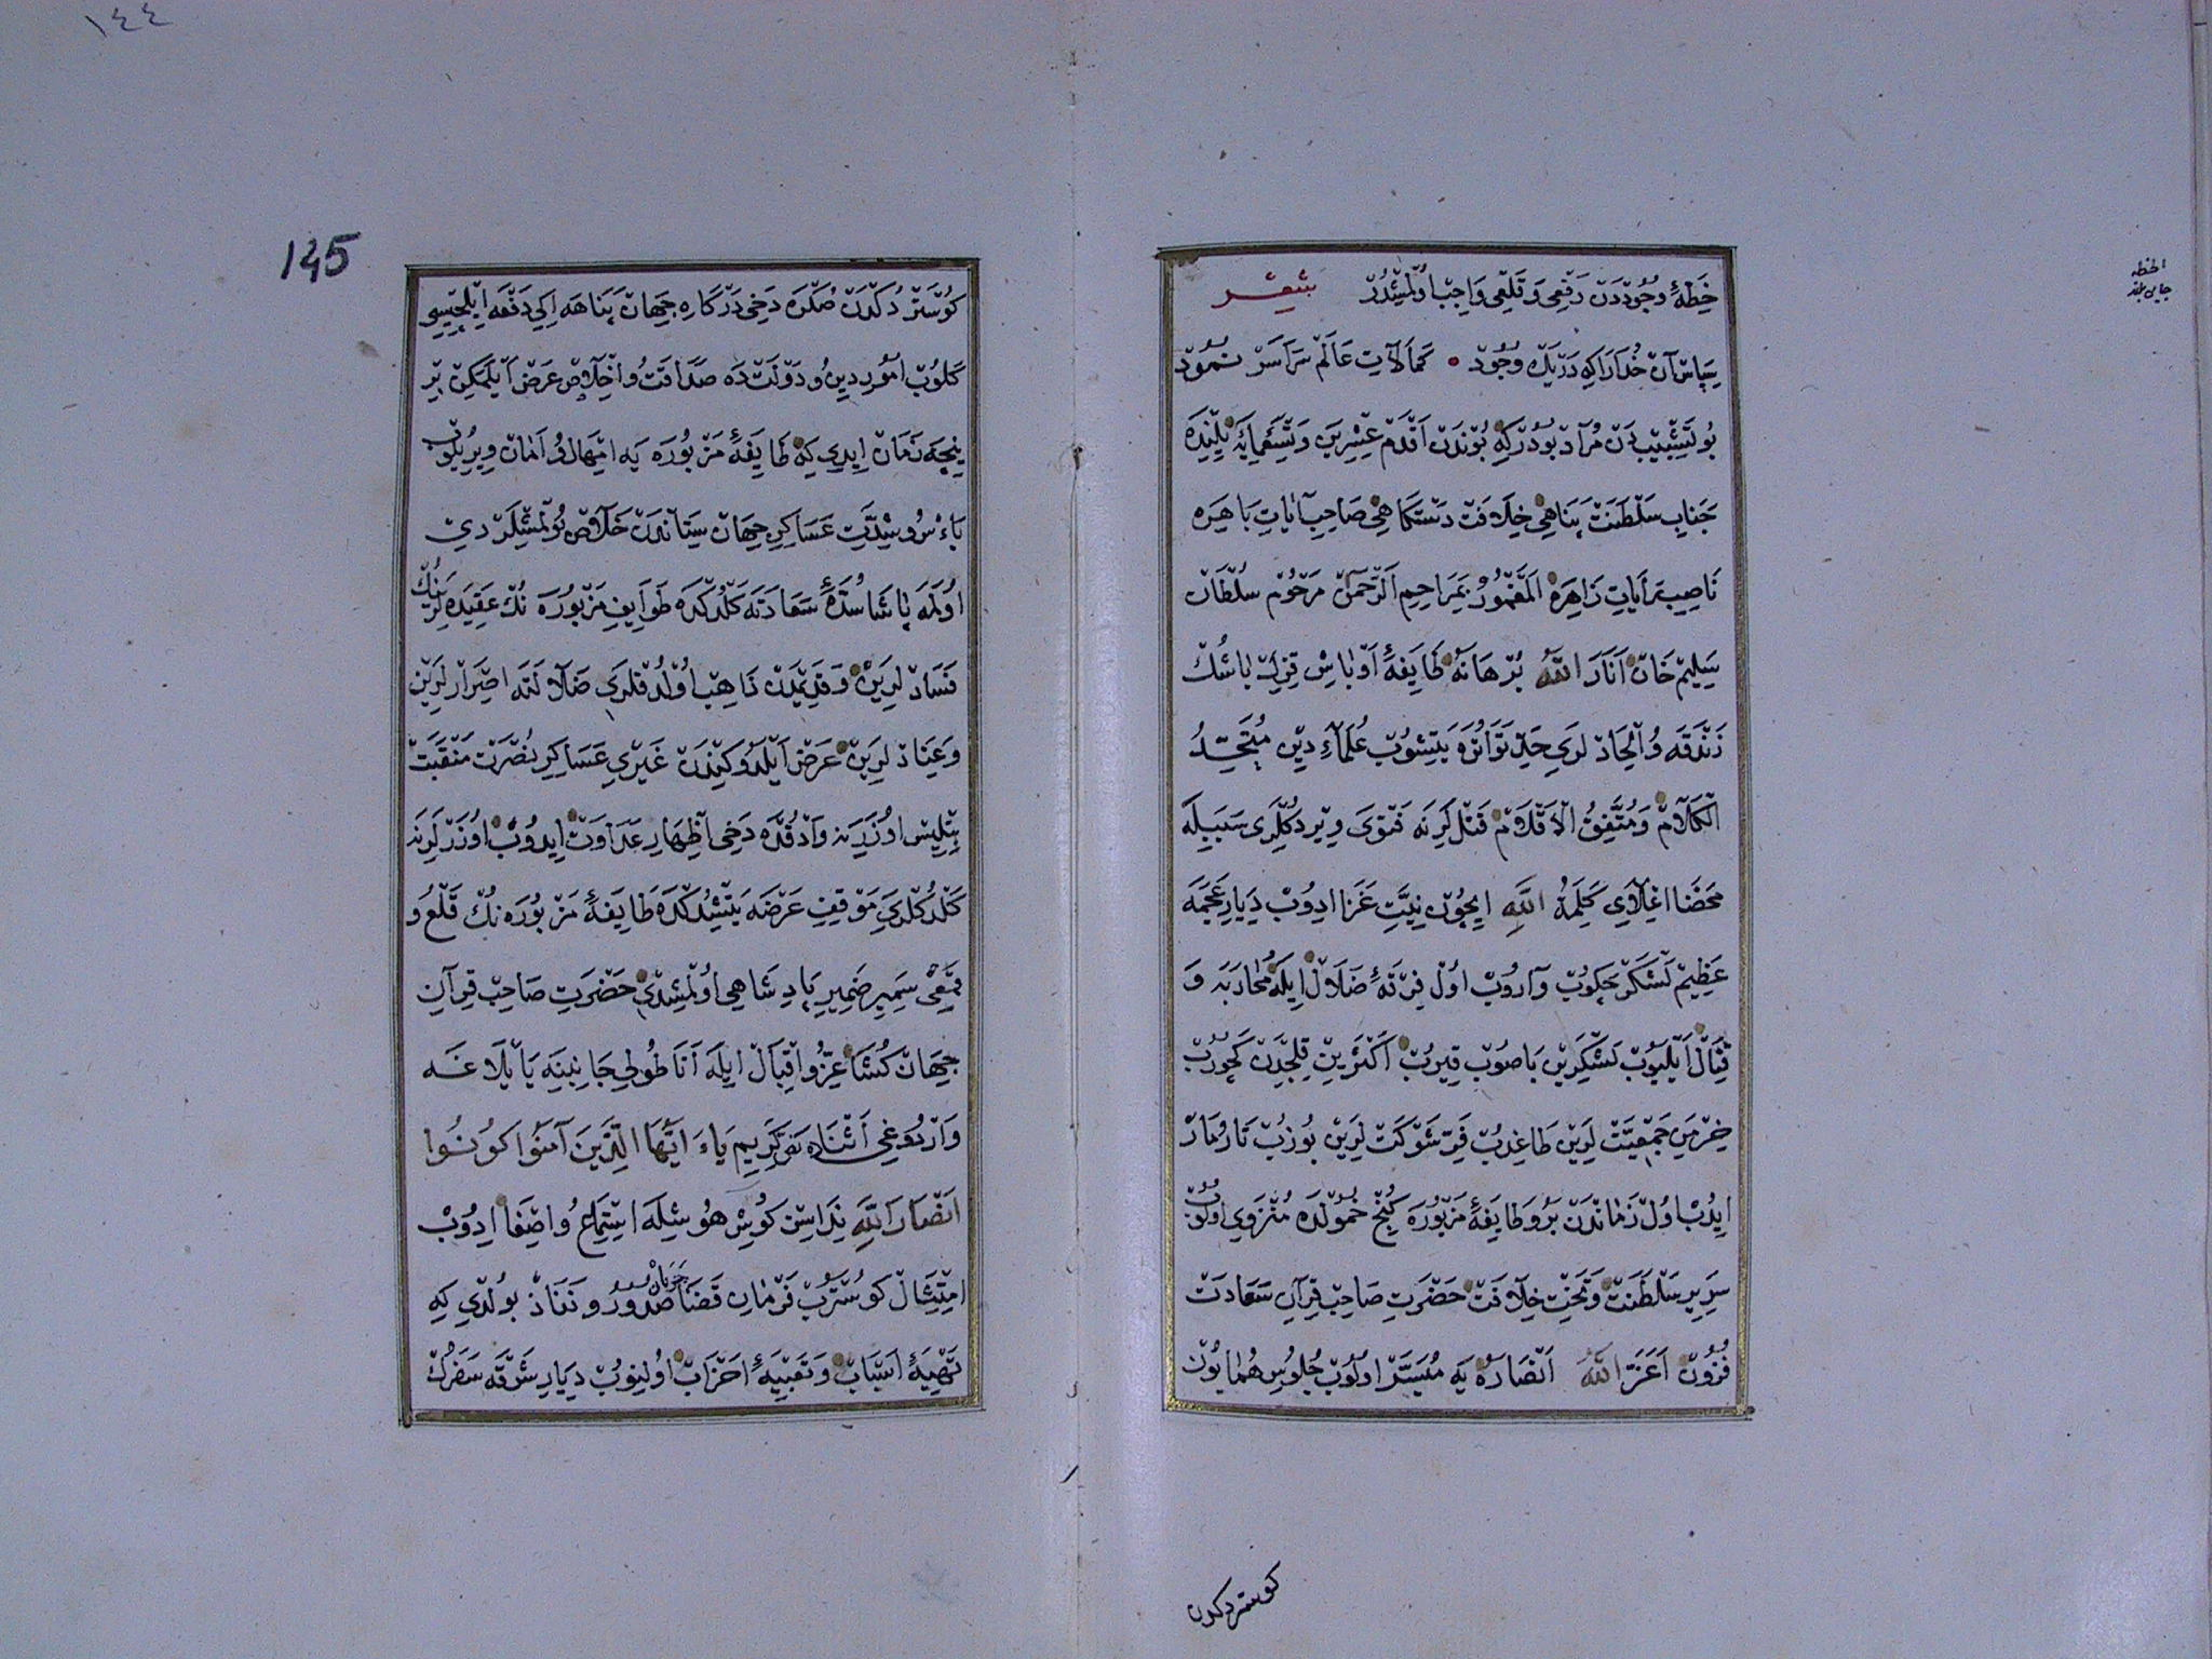 خطۀ وجوددن رفعی و قلعی واجب اولمشدر شعر
سپاس آن خدا را که در یک وجود • کمالات عالم سراسر نمود
بو تشبیبدن مراد بودرکه بوندن اقدم عشرین و تسعمایه ییلنده
جناب سلطنت پناهی خلافت دستکاهی صاحب آیات باهره
ناصب رایات زاهره المغمور بمراحم الرحمن مرحوم سلطان
سلیم خان انار الله برهانه طایفۀ اوباش قزل باشک
زندقه و الحاد لری حد تواتره یتشوب علماء دین متحد
الکلام و متفق الاقلام قتللرینه فتوی ویردکلری سببیله
محضا اعلای کلمة الله ایچون نیت غزا ایدوب دیار عجمه
عظیم لشکر چکوب واروب اول فرقۀ ضلال ایله محاربه و
قتال ایلیوب لشکرین باصوب قیروب اکثرین قلجدن کچوروب
خرمن جمعیت لرین طاغدب فر شوکت لرین بوزب تار و مار
ایدب اول زماندن برو طایفۀ مزبوره کنج خمولده منزوی اولوب
سریر سلطنت و تخت خلافت حضرت صاحب قران سعادت
فزون اعز الله انصاره یه میسر اولوب جلوس همایون
کوستردکدن
١٤٤
145
کوستردکدن صکره دخی درکاه جهان پناهه ایکی دفعه ایلچیسی
کلوب امور دین و دولت ده صداقت و اخلاص عرض ایلمکین بر
نیچه زمان ایدی که طایفۀ مزبوره یه امهال و امان ویریلوب
باءس و شدت عساکر جهان ستاندن خلاص بولمشلر دی
اولمه پاشا سدۀ سعادته کلدکده طوایف مزبوره نک عقیده لرنک
فسادلرین و قدیمدن ذاهب اولدقلری ضلالته اصرارلرین
و عنادلرین عرض ایلدوکیندن غیری عساکر نصرت منقبت
بتلیس اوزرینه واردقده دخی اظهار عداوت ایدوب اوزرلرینه
کلدکلری موقف عرضه یتشدکده طایفۀ مزبوره نک قلع و
قمعی سمیر ضمیر پادشاهی اولمشدی حضرت صاحب قرآن
جهان کشا عز و اقبال ایله اناطولی جانبنه یایلاغه
واردوغی اثناده نص کریم یاء ایها الذین آمنوا کونوا
انصار الله نداسن کوش هوشله استماع و اصغا ایدوب
امتثال کوستروب فرمان قضا جریان صدور و نفاذ بولدی که
تهیۀ اسباب و تعبیۀ احزاب اولنوب دیار شرقه سفرک